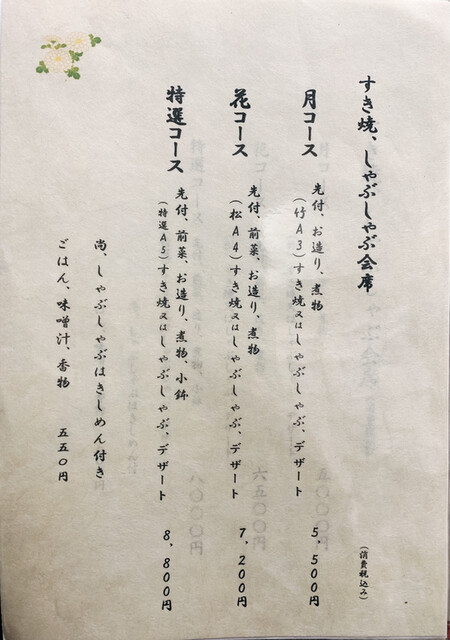 すき焼、しゃぶしゃぶ会席
（消費税込み）
月コース
先付、お造り、煮物
（竹A3）すき焼又はしゃぶしゃぶ、デザート
5，500円
花コース
先付、前菜、お造り、煮物
（松A4）すき焼又はしゃぶしゃぶ、デザート
7，200円
特選コース
先付、前菜、お造り、煮物、小鉢
（特選A5）すき焼又はしゃぶしゃぶ、デザート
8，800円
尚、しゃぶしゃぶはきしめん付き
ごはん、味噌汁、香物　五五〇円